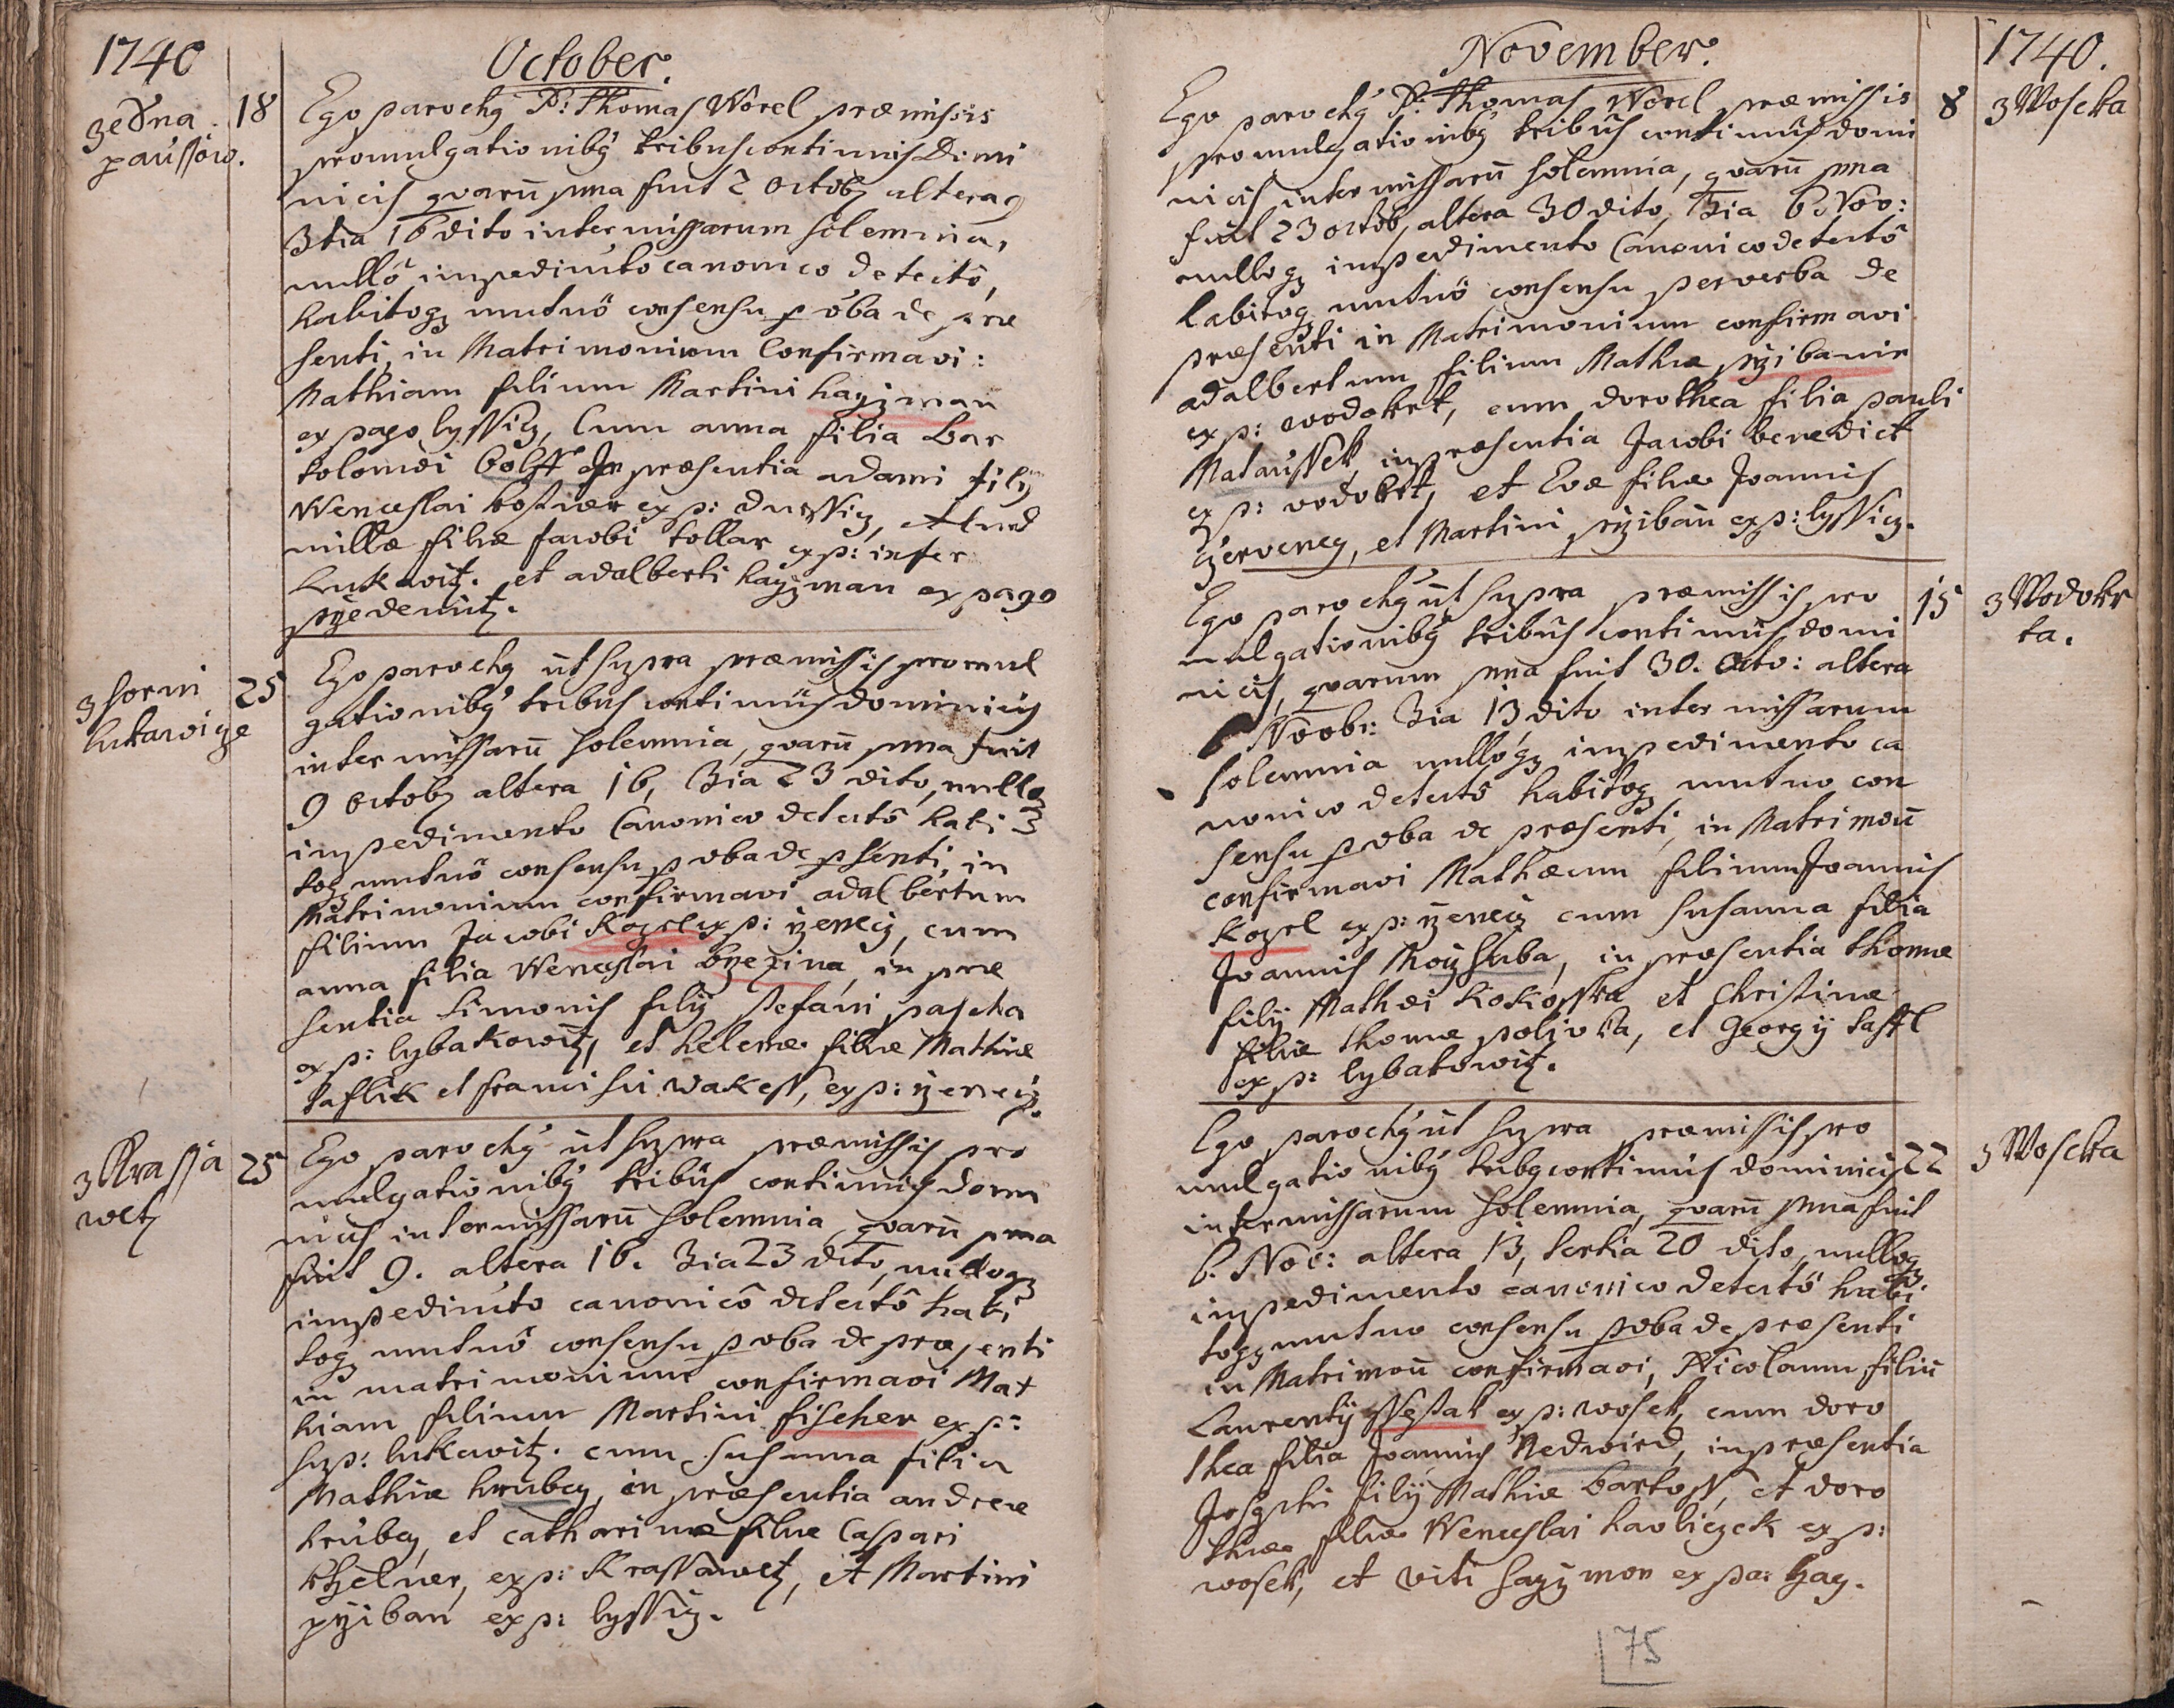 1740
October.
3 edna
paussow.
18
Ego parochg P: Thomas Worel præmissis
promulgationibg tribus continuis Domi
nicis quarū pma fuit 2 octobr altera 9
3tia 16 dito inter missarum solemnia,
nullô impedimto canonico detectô,
habitoq mutuô consensu p vba de præ
senti, in Matrimonium Confirmavi:
Mathiam filium Martini hayzman
ex pago lyssicz, Cum anna filia Bar
tolomæi Golss In præsentia adami filij
Wenceslai kostner ex p: dursticz, et lud
millæ filiæ Jacobi kollar ex p: infer
Lukawitz. et adalberti hayzman ex pago
przedenitz.
3 horni
lukawicze
25
Ego parochg ut supra præmissis promul
gationibg tribus continuis dominicis
inter missarū solemnia, quarū pma fuit
9 octobr altera 16, 3ia 23 dito, nulloq
impedimento Canonico detectô habi
toq mutuô consensu p vba de psenti, in
Matrimonium confirmavi adalbertum
filium Jacobi Kozel ex p: zenecz, cum
anna filia Wenceslai Brzezina, in præ
sentia Simonis filij stefani pascha
ex p: lybakowitz, et helenæ filiæ Mathiæ
taflik et francisci wakess, ex p: zenecz.
3 Krassa
wetz
25
Ego parochg ut supra præmissis pro
mulgationibg tribus continuis domi
nicis inter missarū solemnia, quarū pma
fuit 9. altera 16. 3ia 23 dito, nulloq
impedimto canonicô detectô habi
toq mutuô consensu p vba de præsenti
in matrimonium confirmavi Mat
hiam filium Martini fischer ex p:
sup: lukawitz. cum Susanna filia
Mathiæ hrubey, in præsentia andreæ
hrubey, et catharinæ filiæ Caspari
khelner, ex p: Krassawetz, et Martini
prziban ex p: lyssicz.
November.
1740.
Ego parochg P: Thomas Worel præmissis
8
3 Woseka
promulgationibg tribus continuis domi
nicis inter missarū solemnia, quarū pma
fuit 23 octob, altera 30 dito, 3ia 6. Nov:
nulloq impedimento Canonico detectô
habitoq mutuô consensu per verba de
præsenti in Matrimonium confirmavi
adalbertum filium Mathiæ przibanin
ex p: wodokrt, cum dorothea filia pauli
Mataussek, in præsentia Jacobi benedict
ex p: wodokrt, et Evæ filiæ Joannis
czerveney, et Martini przibān ex p: lyssicz.
Ego parochg ut supra præmissis pro
15
3 Wodokr
ta.
mulgationibg tribus continuis domi
nicis, quarum pma fuit 30. Octo: altera
6 Novbr: 3ia 13 dito inter missarum
solemnia nullôq impedimento ca
nonico detectô habitoq mutuo con
sensu p vba de præsenti, in Matrimoū
confirmavi Mathæum filium Joannis
Kozel ex p: zenecz cum Susanna filia
Joannis Moyshuba, in præsentia thomæ
filij Mathæi Kokosska et Christinæ
filiæ thomæ polivka, et Georgij taffl
ex p: lybakowitz.
Ego parochg ut supra præmissis pro
mulgationibg tribg continuis dominicis
22
3 Woseka
inter missarum solemnia, quarū pma fuit
6. Nov: altera 13, tertia 20 dito, nulloq
impedimento canonico detectô habi
toq mutuo consensu p vba de præsenti
in Matrimoū confirmavi, Nicolaum filiū
Laurentij ssestak ex p: wosek, cum doro
thea filia Joannis Nedwied, in præsentia
Josephi filij Mathiæ Bartoss, et doro
theæ filiæ Wenceslai havliczek ex p:
wosek, et viti hayzman ex pa: hay.
75